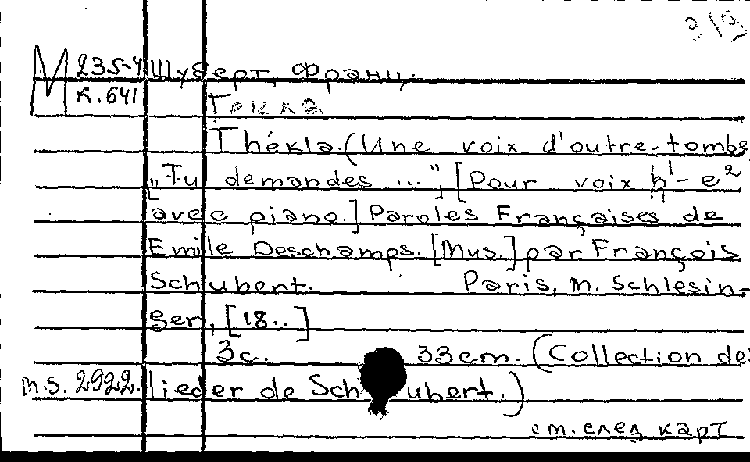 М 235-4 Шуберт, Франц.
к. 641 Текла
Thékla. (Une voix d'outre-tombe
„Tu demandes ...", [Pour voix h¹ – e²
avec piano.] Paroles Françaises de
Emile Deschamps. [Mus.] par François
Schubert. Paris, M. Schlesin-
ger, [18..]
3c. 33cm. (Collection des
m.s. 2922. lieder de Schubert.)
см. след карт